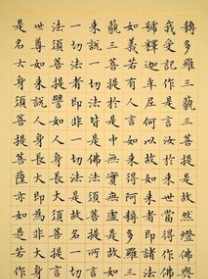 耨多羅三藐三菩提是故然燈佛與
我受記作是言汝於來世當得作佛
號釋迦牟尼何以故如來者即諸法
如義若有人言如來得阿耨多羅三
藐三菩提於是中無實無虛是故如
來說一切法皆是佛法須菩提所言
一切法者即非一切法是故名一切
法須菩提譬如人身長大須菩提言
世尊如來說人身長大即為非大身
是名大身須菩提菩薩亦如是若作